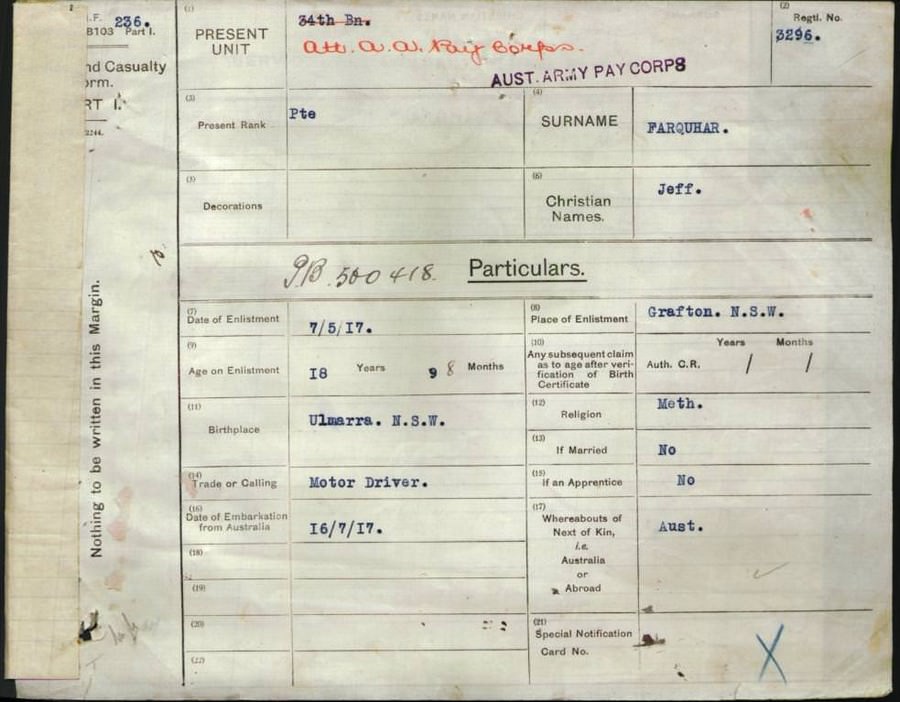 .F. 236.
B103 Part I.
nd Casualty
orm.
RT I.
2244.
Nothing to be written in this Margin.
(1)
PRESENT
UNIT
34th Bn.
Att. A. A. Pay Corps.
AUST. ARMY PAY CORPS
(2)
Regtl. No.
3296.
(3)
Present Rank
Pte
(4)
SURNAME
FARQUHAR.
(5)
Decorations
(6)
Christian
Names.
Jeff.
500418. Particulars.
(7)
Date of Enlistment
7/5/17.
(8)
Place of Enlistment
Grafton. N.S.W.
(9)
Age on Enlistment
18 Years 9 8 Months
(10)
Any subsequent claim
as to age after veri-
fication of Birth
Certificate
Years Months
Auth. C.R. / /
(11)
Birthplace
Ulmarra. N.S.W.
(12)
Religion
Meth.
(13)
If Married
No
(14)
Trade or Calling
Motor Driver.
(15)
If an Apprentice
No
(16)
Date of Embarkation
from Australia
16/7/17.
(17)
Whereabouts of
Next of Kin,
i.e.
Australia
or
Abroad
Aust.
(18)
(19)
(20)
(21)
Special Notification
Card No.
X
(22)